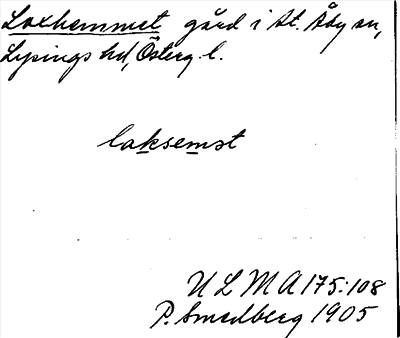 Loxhemmet gård i St. Åby sn,
Lysings hd, Österg. l.
laksemst
ULMA 175:108
P. Smedberg 1905